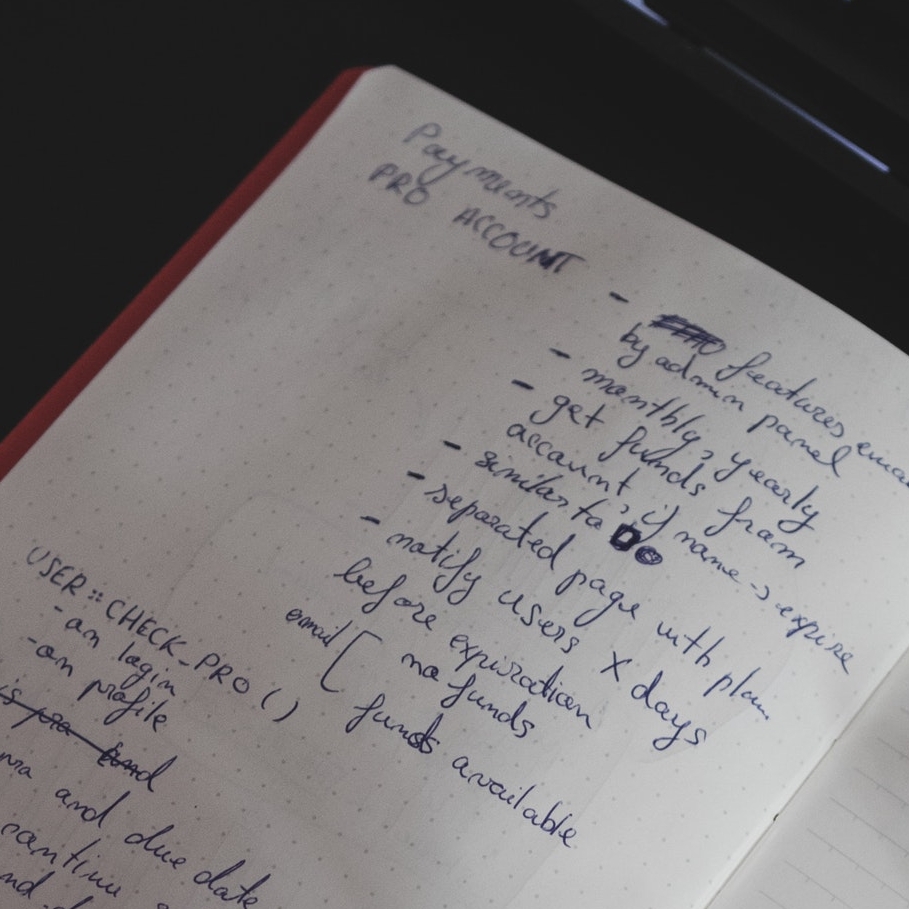 Payments
PRO ACCOUNT
- features
by admin panel
- monthly, yearly
- get funds from
account, if name -> expire
- similar to
- separated page with plan
- notify users X days
before expiration
email [ no funds
funds available
USER::CHECK_PRO()
- on login
- on profile
is pro and
and due date